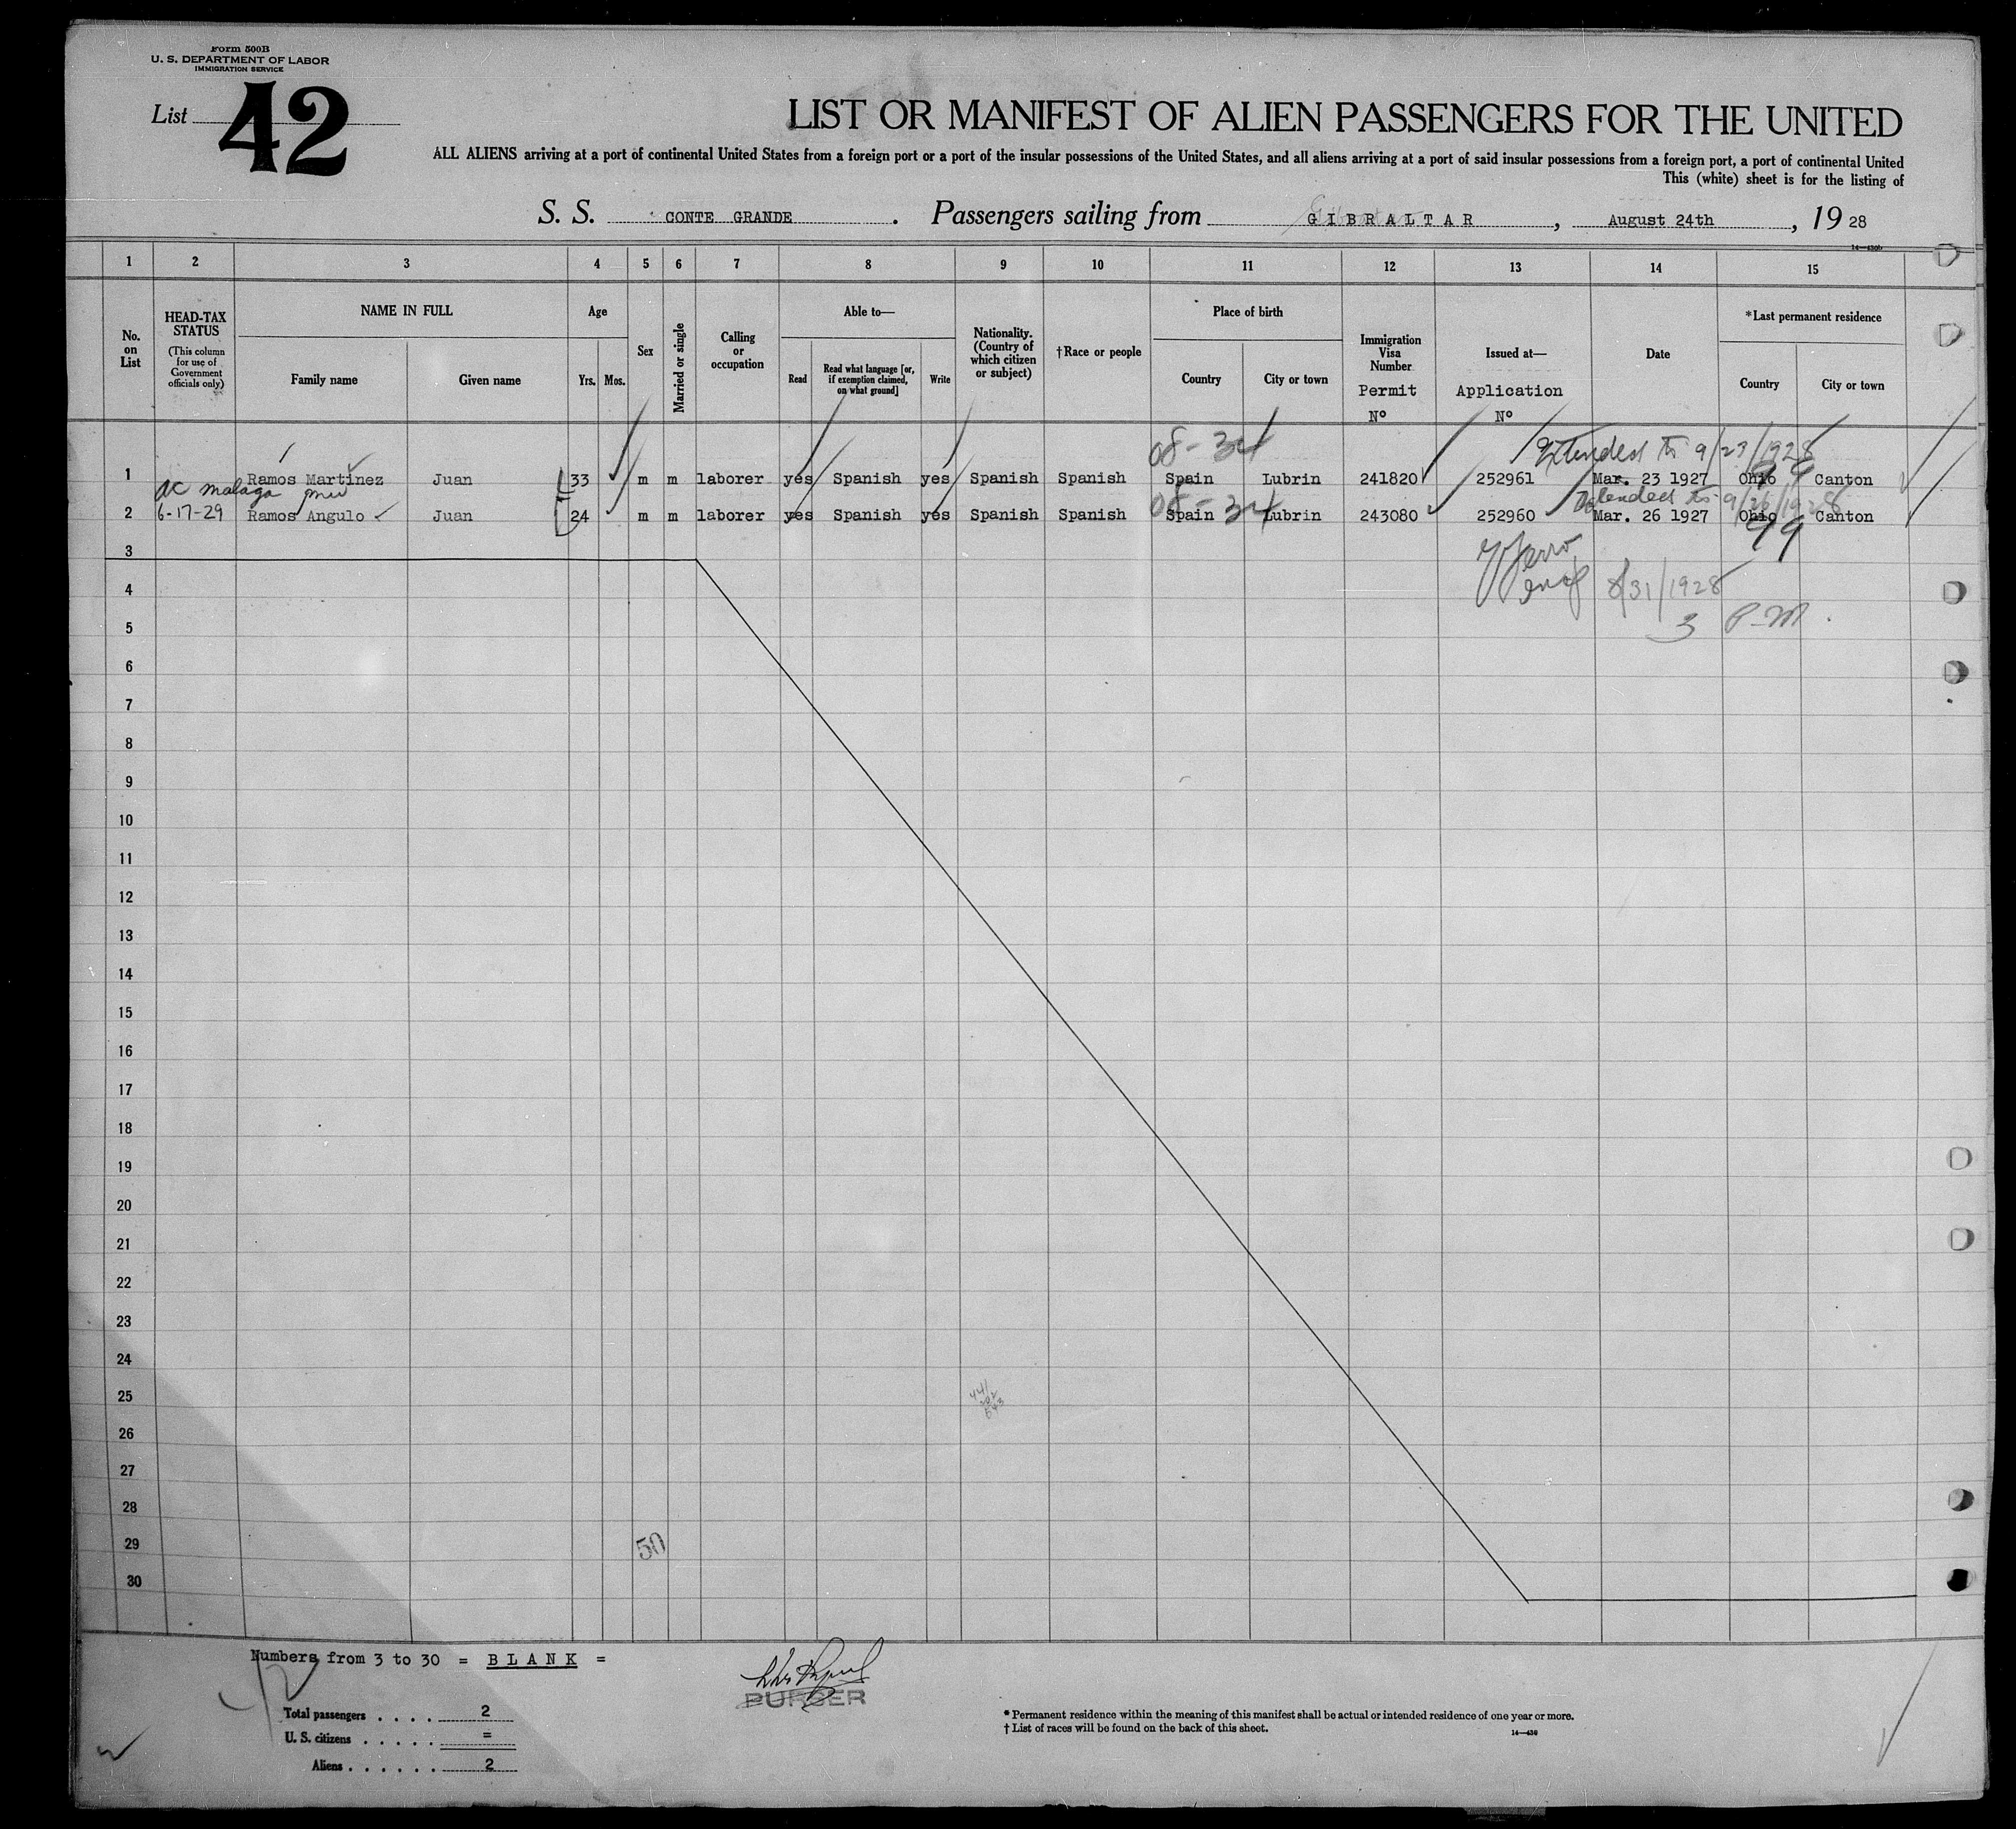 Form 500B
U. S. DEPARTMENT OF LABOR
IMMIGRATION SERVICE
List 42
LIST OR MANIFEST OF ALIEN PASSENGERS FOR THE UNITED
ALL ALIENS arriving at a port of continental United States from a foreign port or a port of the insular possessions of the United States, and all aliens arriving at a port of said insular possessions from a foreign port, a port of continental United
This (white) sheet is for the listing of
S. S. CONTE GRANDE. Passengers sailing from GIBRALTAR, August 24th, 19 28
1 2 3 4 5 6 7 8 9 10 11 12 13 14 15
No. on List
HEAD-TAX STATUS
(This column for use of Government officials only)
NAME IN FULL
Family name Given name
Age
Yrs. Mos.
Sex
Married or single
Calling or occupation
Able to—
Read Read what language [or, if exemption claimed, on what ground] Write
Nationality. (Country of which citizen or subject)
†Race or people
Place of birth
Country City or town
Immigration Visa Number
Permit Nº
Issued at—
Application Nº
Date
*Last permanent residence
Country City or town
08-34 Extended to 9/23/1928
1 Ramos Martinez Juan 33 m m laborer yes Spanish yes Spanish Spanish Spain Lubrin 241820 252961 Mar. 23 1927 Ohio Canton
99
ac malaga
08-34 Extended to 9/26/1928
2 6-17-29 Ramos Angulo Juan 24 m m laborer yes Spanish yes Spanish Spanish Spain Lubrin 243080 252960 Mar. 26 1927 Ohio Canton
99
3
4 8/31/1928
5 3 P-M.
6
7
8
9
10
11
12
13
14
15
16
17
18
19
20
21
22
23
24
25
26
27
28
29 50
30
Numbers from 3 to 30 = BLANK =
PURSER
Total passengers . . . . 2
U. S. citizens . . . . . =
Aliens . . . . . . 2
* Permanent residence within the meaning of this manifest shall be actual or intended residence of one year or more.
† List of races will be found on the back of this sheet.
14—430